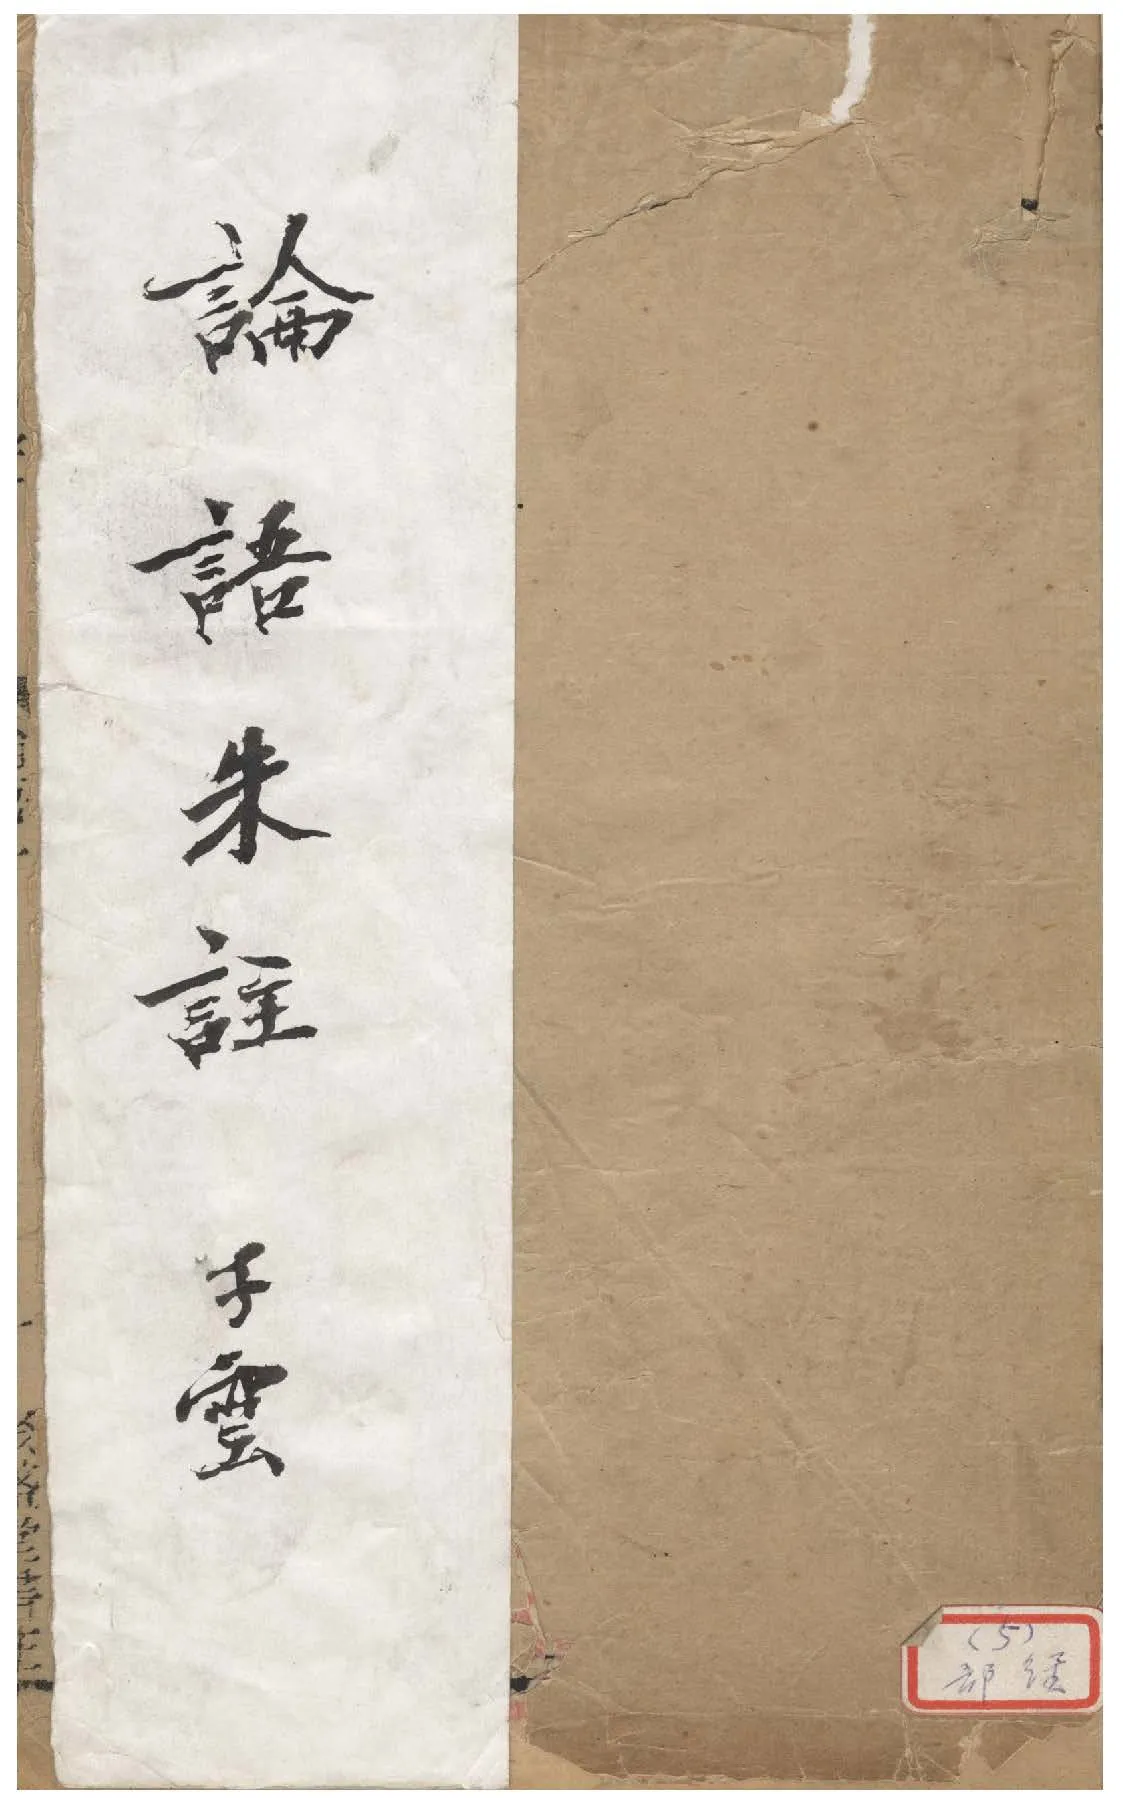 論語朱註 子雲
(5)
經部